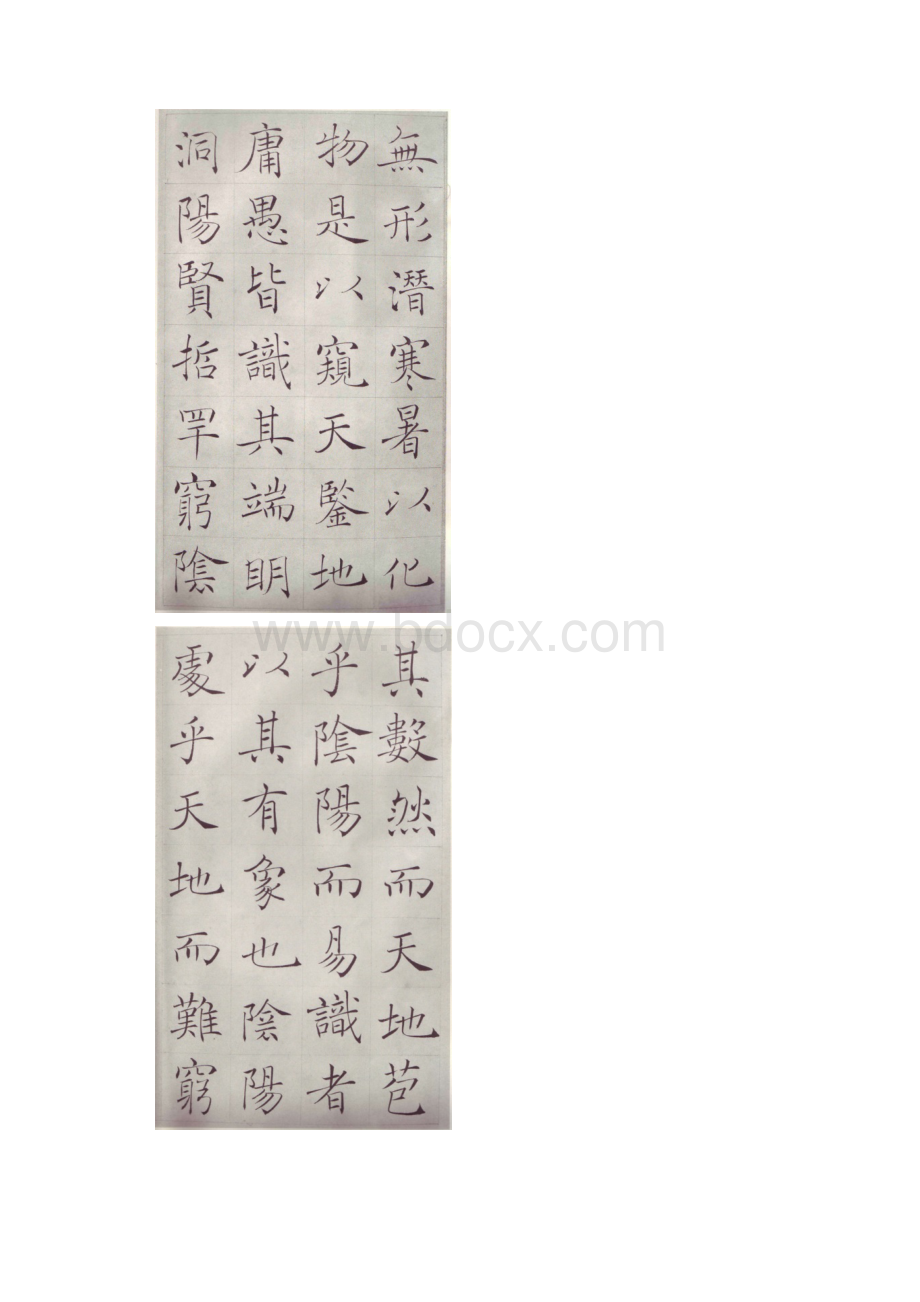 無形潛寒暑以化
物是以窺天鑒地
庸愚皆識其端明
洞陽賢哲罕窮陰
www.bdocx.com
其數然而天地苞
乎陰陽而易識者
以其有象也陰陽
處乎天地而難窮